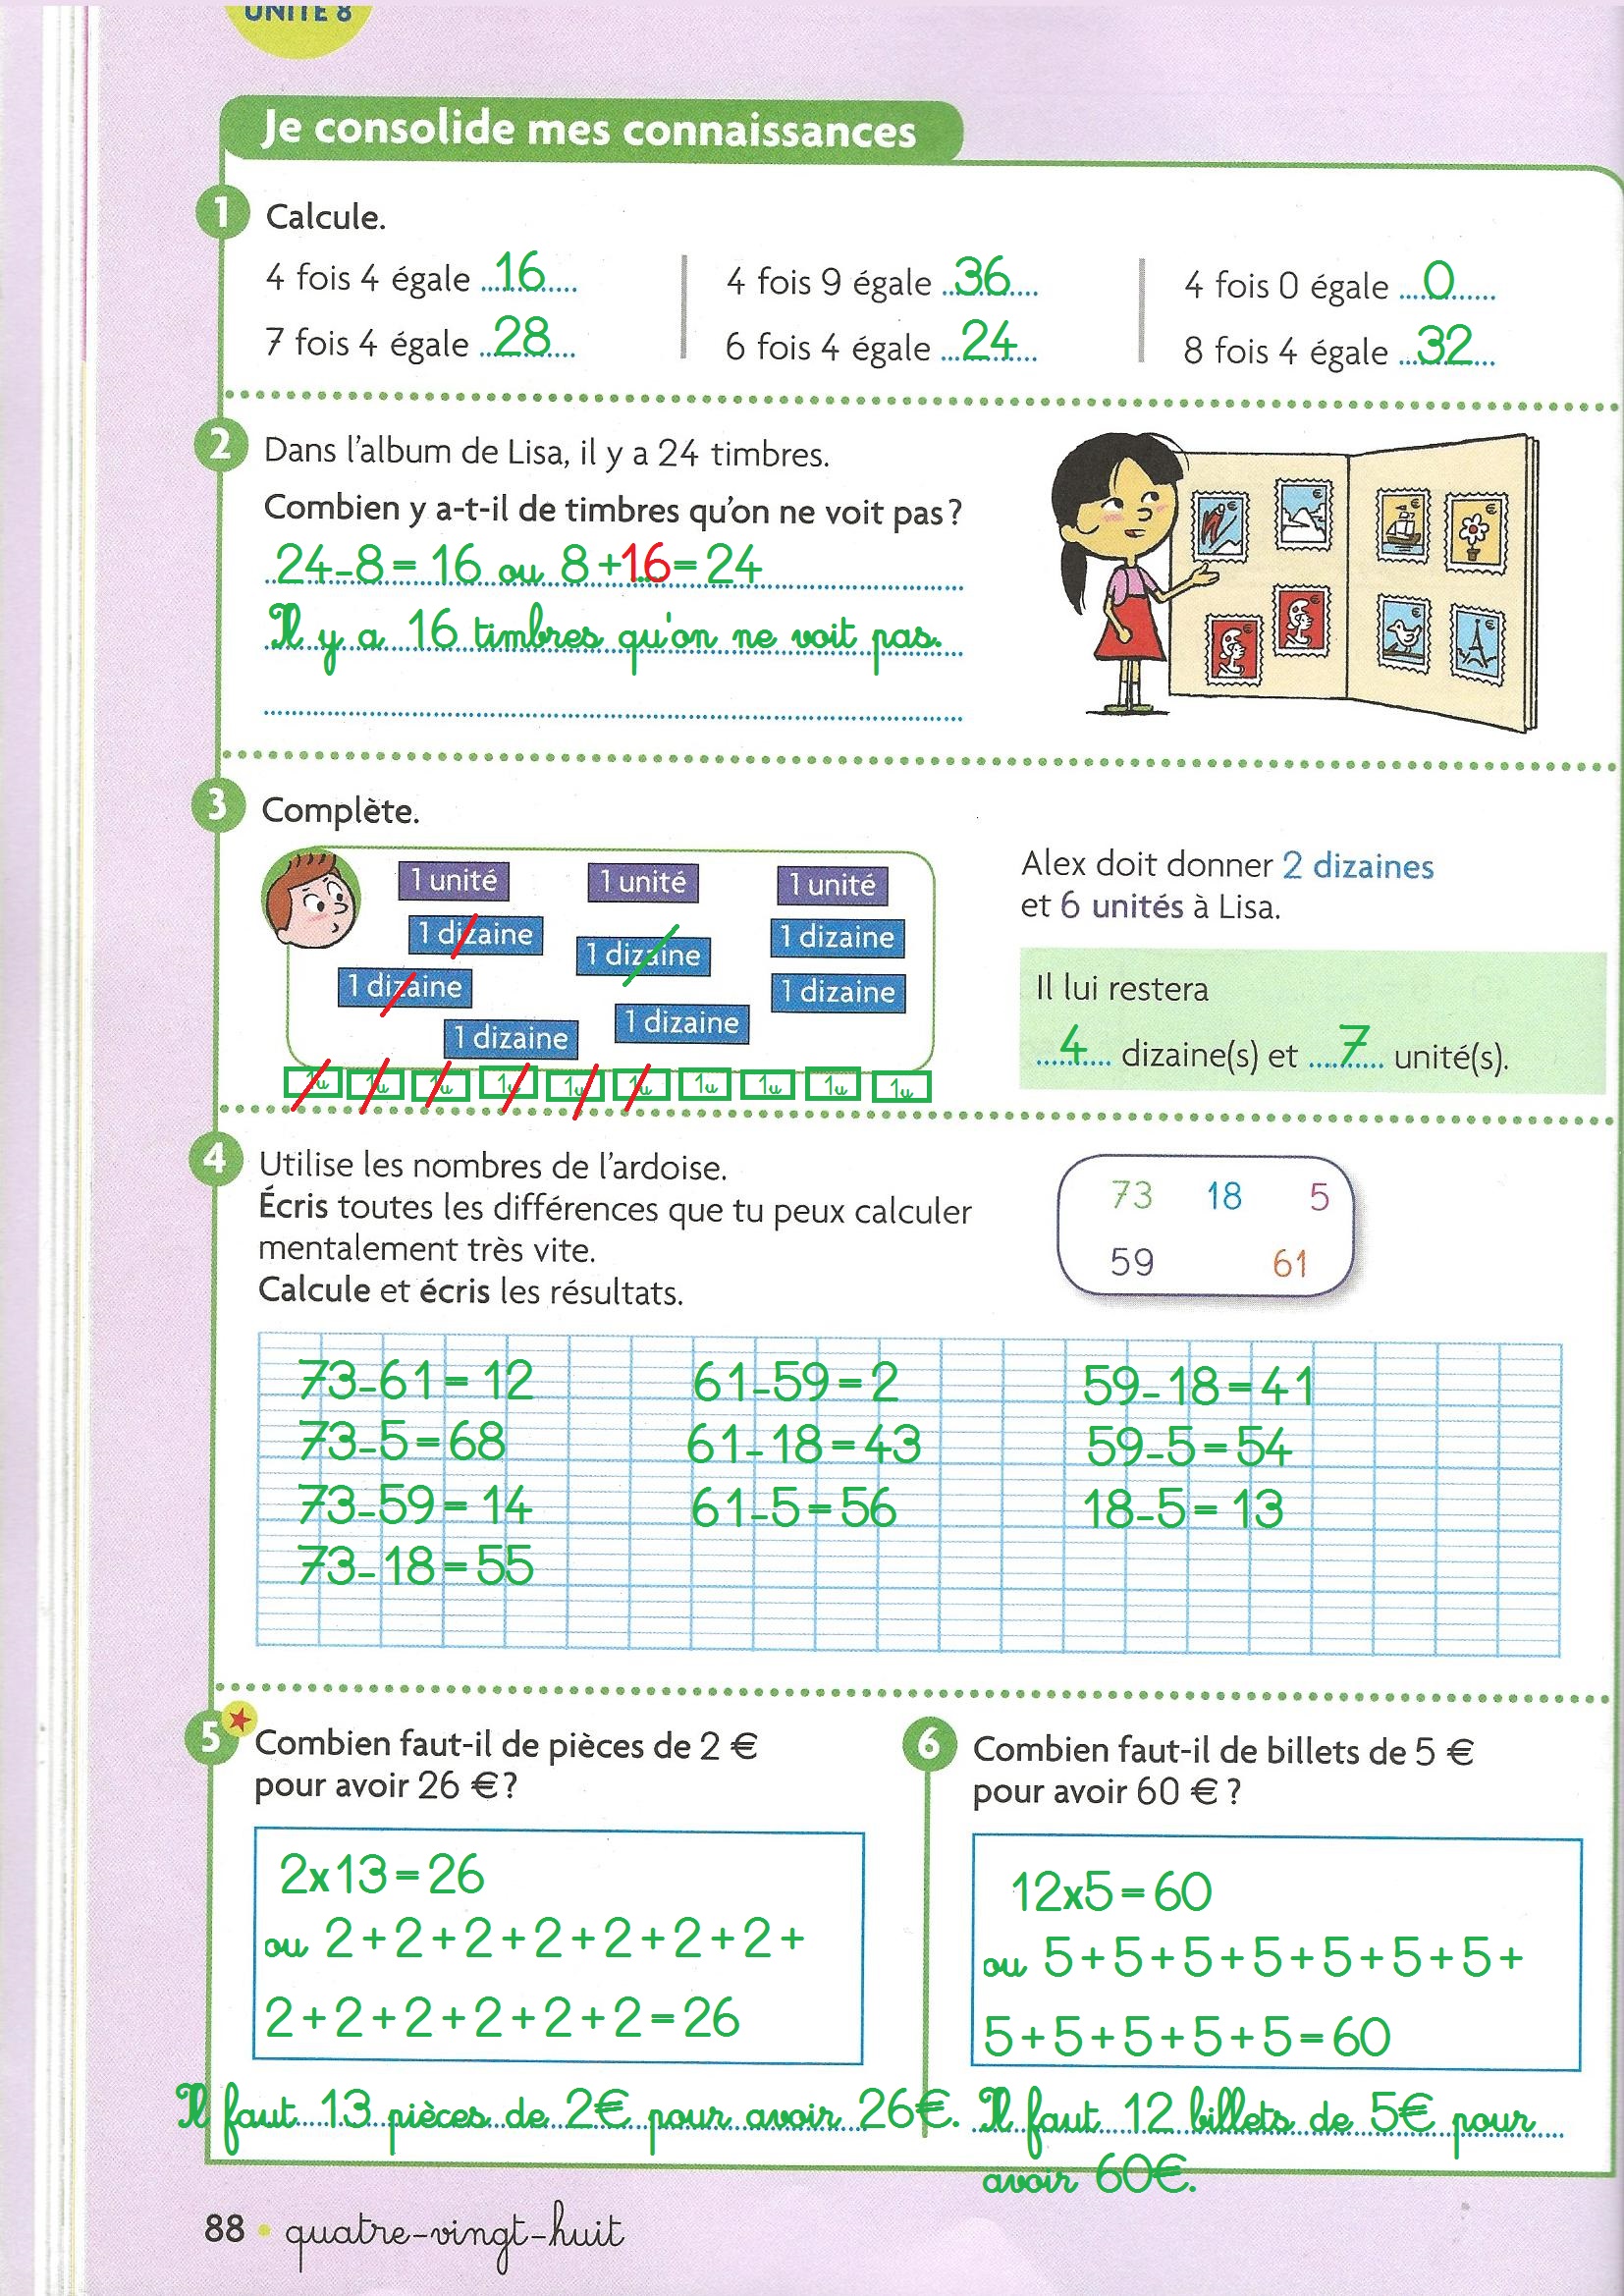 UNITÉ 8
Je consolide mes connaissances
1 Calcule.
4 fois 4 égale 16
4 fois 9 égale 36
4 fois 0 égale 0
7 fois 4 égale 28
6 fois 4 égale 24
8 fois 4 égale 32
2 Dans l'album de Lisa, il y a 24 timbres.
Combien y a-t-il de timbres qu'on ne voit pas ?
24-8 = 16 ou 8+16=24
Il y a 16 timbres qu'on ne voit pas.
3 Complète.
1 unité 1 unité 1 unité
1 dizaine 1 dizaine 1 dizaine
1 dizaine 1 dizaine
1 dizaine 1 dizaine
1u 1u 1u 1u 1u 1u 1u 1u 1u 1u
Alex doit donner 2 dizaines
et 6 unités à Lisa.
Il lui restera
4 dizaine(s) et 7 unité(s).
4 Utilise les nombres de l'ardoise.
Écris toutes les différences que tu peux calculer
mentalement très vite.
Calcule et écris les résultats.
73 18 5
59 61
73-61 = 12 61-59=2 59-18=41
73-5=68 61-18=43 59-5=54
73-59= 14 61-5=56 18-5= 13
73-18=55
5 Combien faut-il de pièces de 2 €
pour avoir 26 € ?
2x13=26
ou 2+2+2+2+2+2+2+
2+2+2+2+2+2=26
Il faut 13 pièces de 2€ pour avoir 26€.
6 Combien faut-il de billets de 5 €
pour avoir 60 € ?
12x5=60
ou 5+5+5+5+5+5+5+
5+5+5+5+5=60
Il faut 12 billets de 5€ pour
avoir 60€.
88 • quatre-vingt-huit